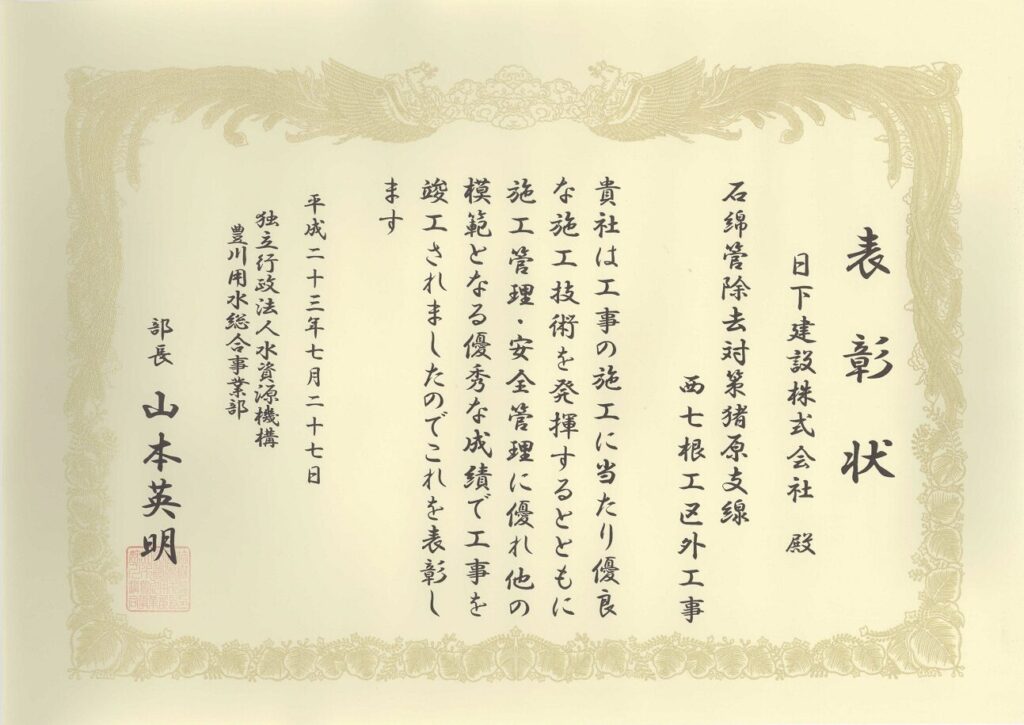 表彰状
日下建設株式会社 殿
石綿管除去対策猪原支線
西七根工区外工事
貴社は工事の施工に当たり優良
な施工技術を発揮するとともに
施工管理・安全管理に優れ他の
模範となる優秀な成績で工事を
竣工されましたのでこれを表彰し
ます
平成二十三年七月二十七日
独立行政法人水資源機構
豊川用水総合事業部
部長 山本英明